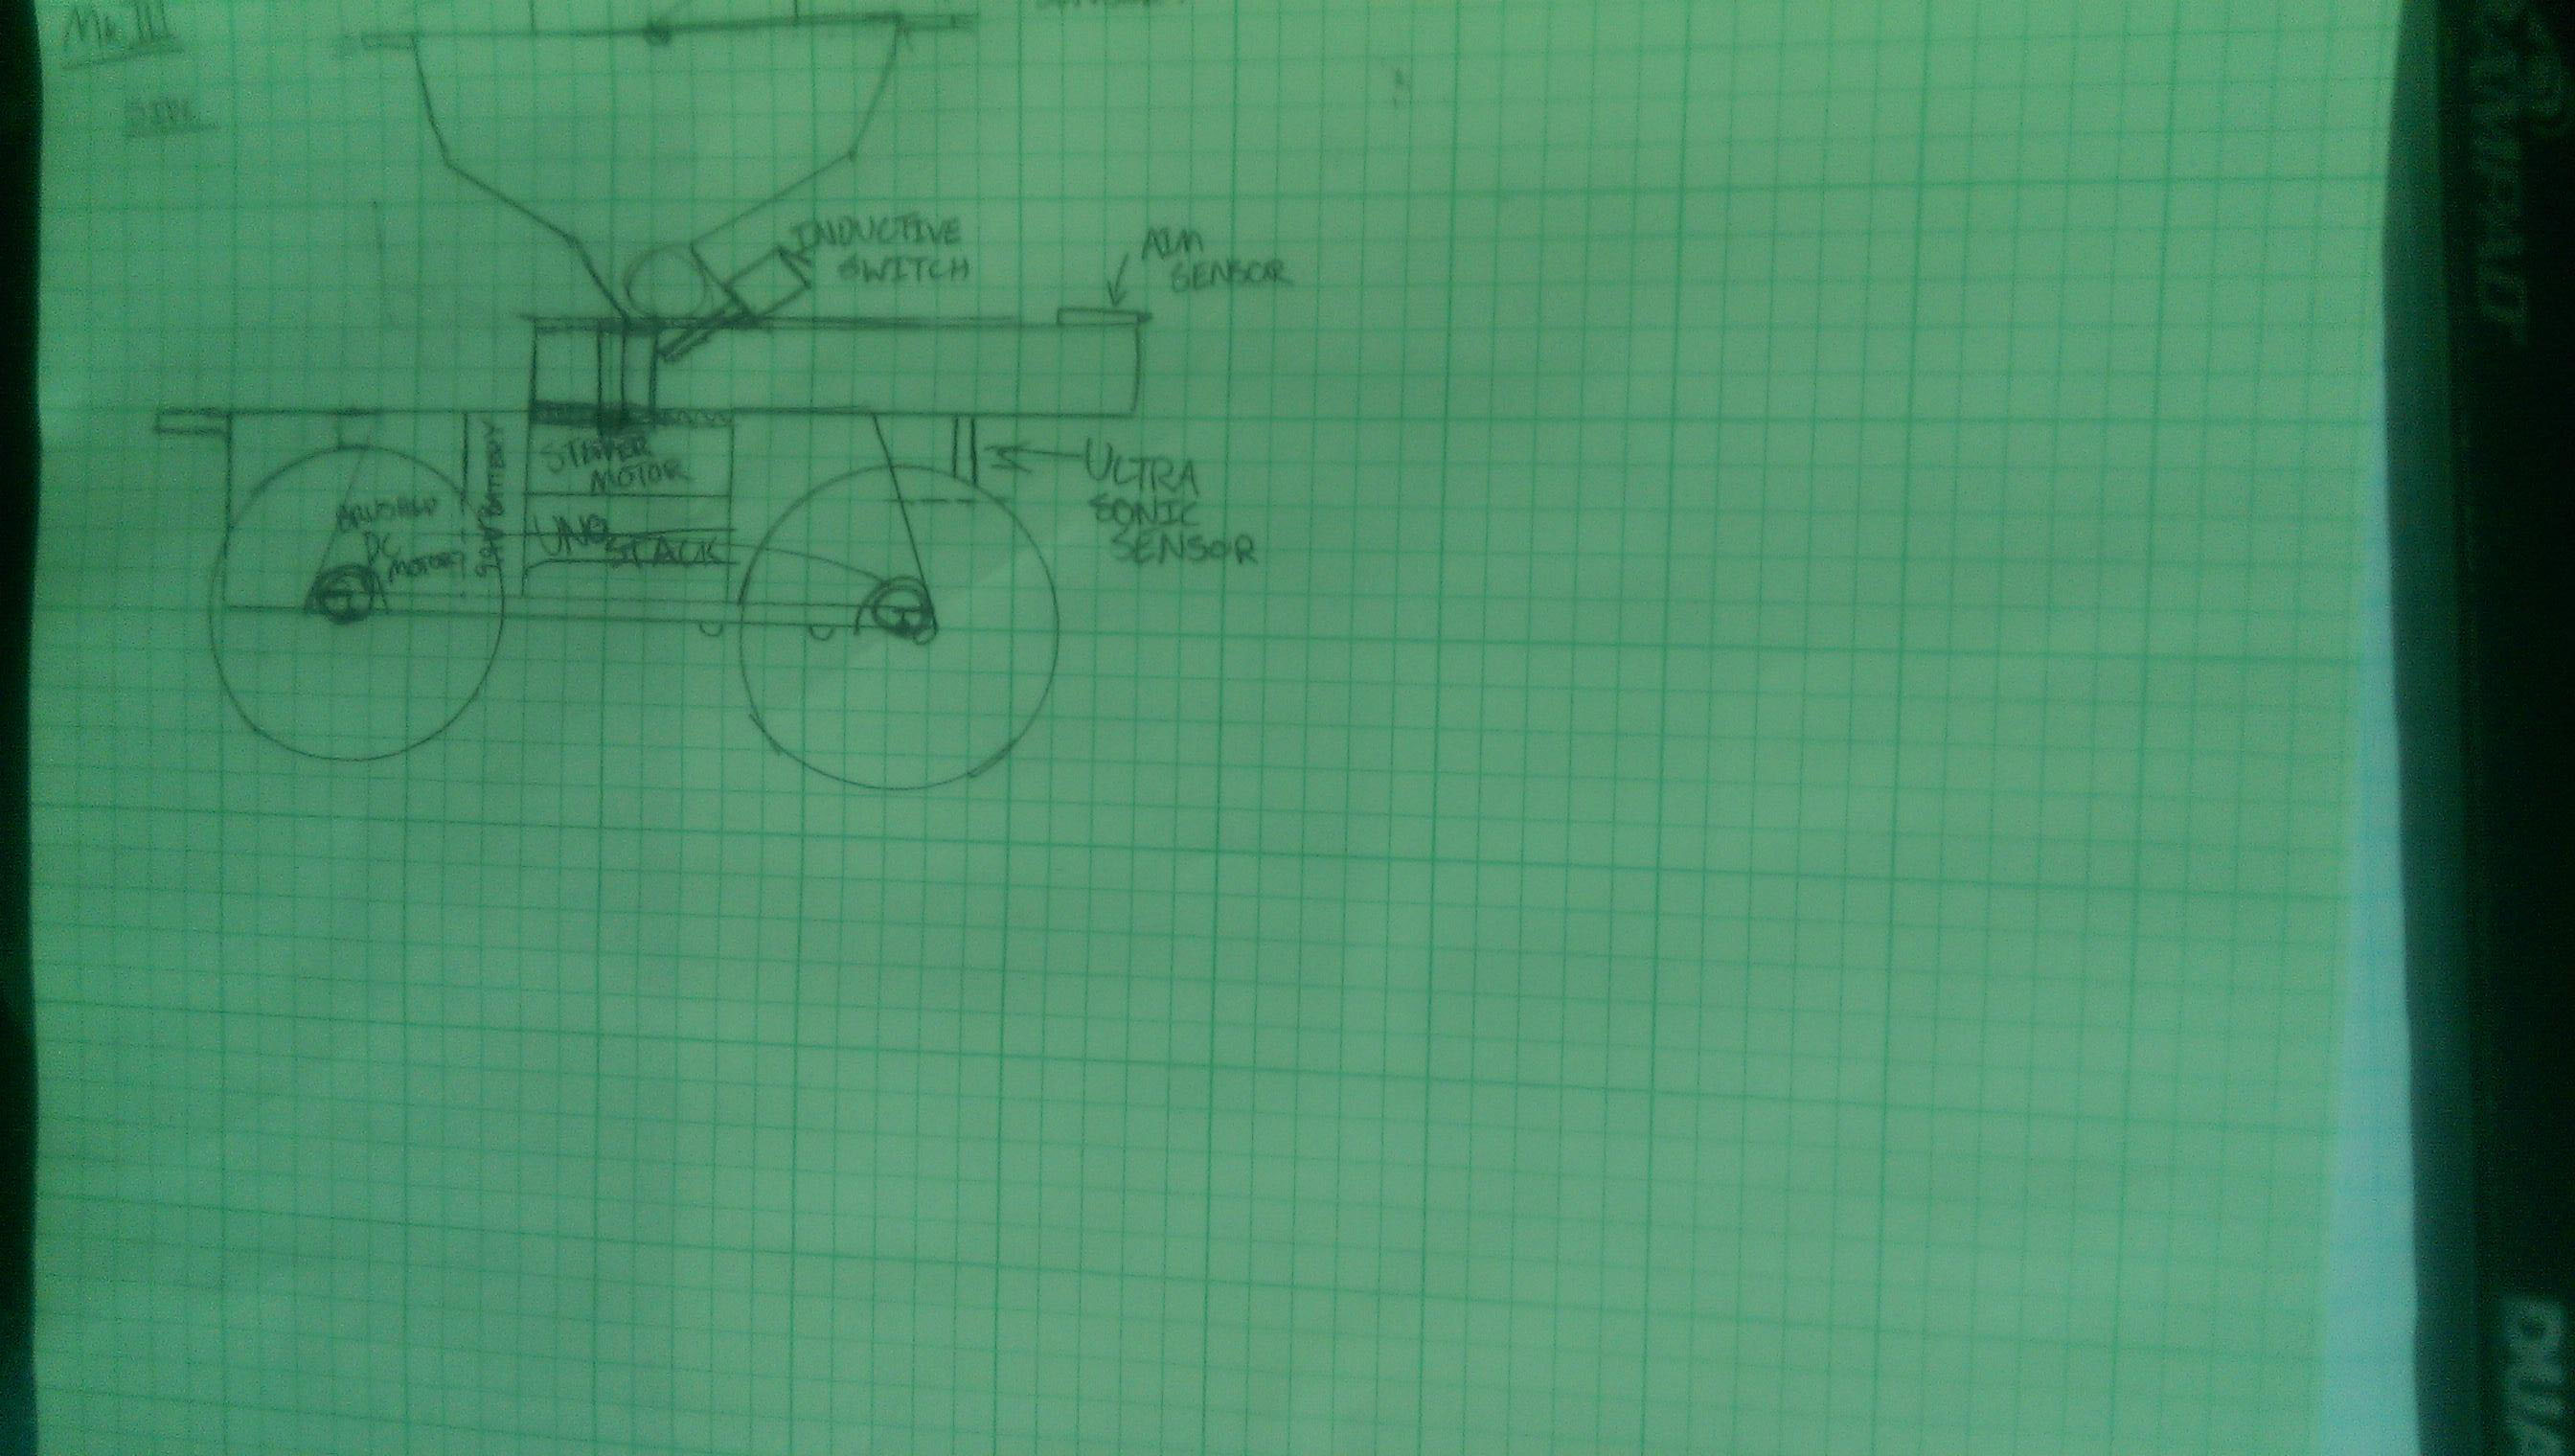 Mk III
SIDE
INDUCTIVE
SWITCH
AIM
SENSOR
STEPPER
MOTOR
BATTERY
BRUSHED
DC
MOTOR?
UNO
STACK
ULTRA
SONIC
SENSOR